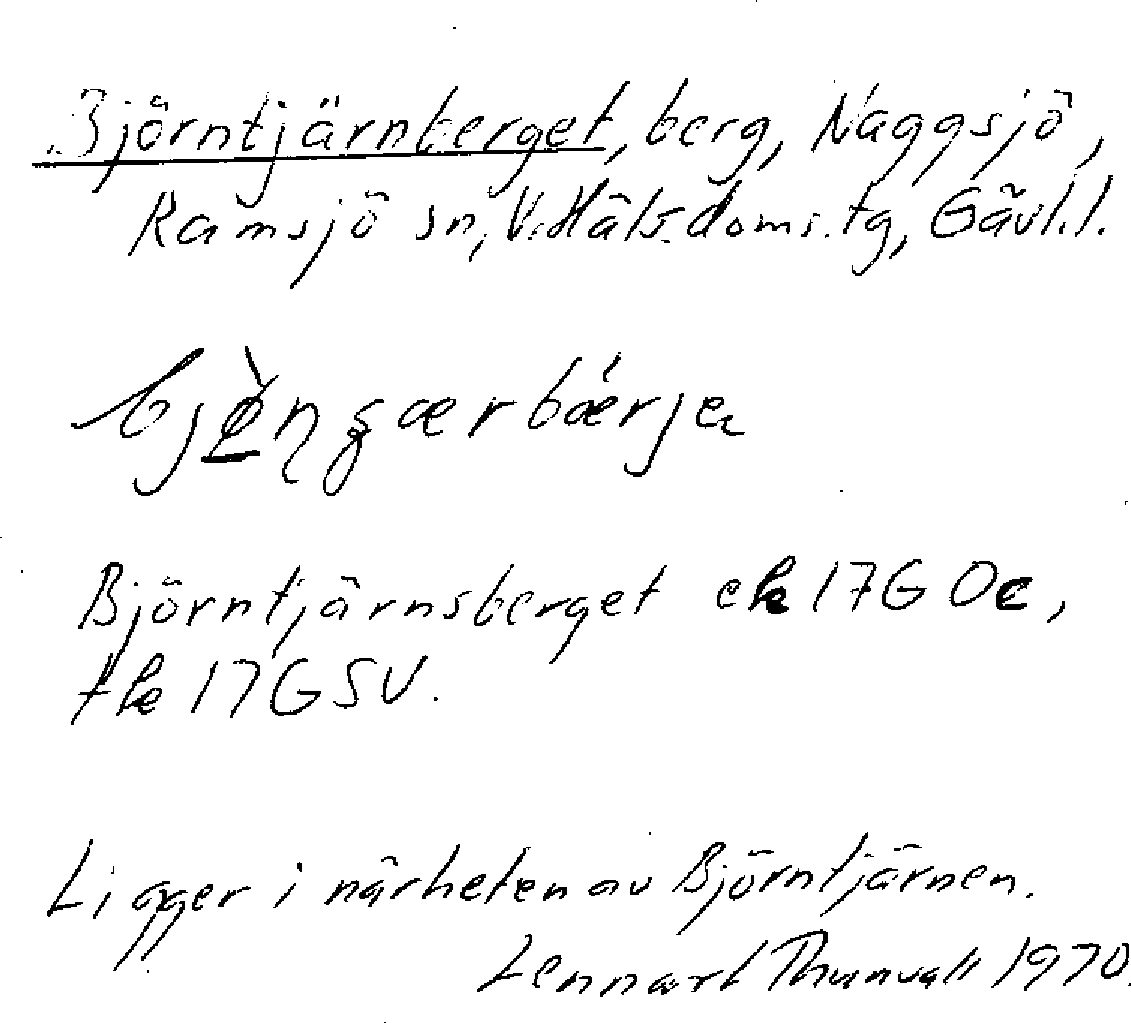 Björntjärnberget, berg, Naggsjö,
Ramsjö sn, V. Häls. doms. tg, Gävl. l.
Björntjärnsberget ek 17G 0e,
tk 17G SV.
Ligger i närheten av Björntjärnen.
Lennart Thunvall 1970.